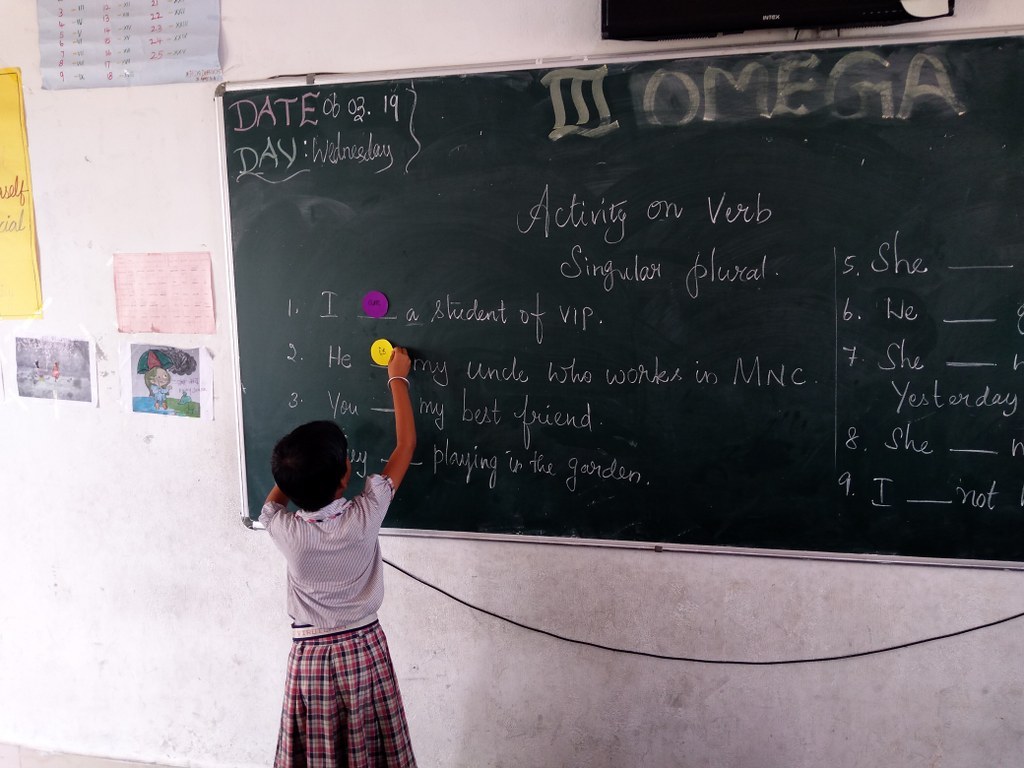 INTEX
III OMEGA
DATE 06 03. 19
DAY: Wednesday
Activity on Verb
Singular plural.
1. I am a student of VIP.
2. He is my uncle who works in MNC.
3. You ___ my best friend.
ey ___ playing in the garden.
5. She ___
6. We ___
7. She ___
Yesterday
8. She ___
9. I ___ not
self
cial